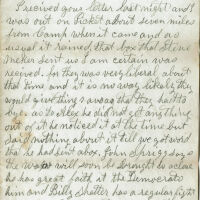 I recived your letter last night and I
was out on Picket about seven miles
from Camp when it came and as
usual it rained, that box that Stine
sent us I am certain was
recived. for they was very liberal about
that time and it is no way likely they
would give things away that they had to
buy. as to Alex he did not get any thing
out of it he noticed it at the time but
said nothing about it till we got word
that he had sent also. John Spriggs says
the War will soon be brought to a close
he has great faith in the Democrats
him and Billy Shetter has a regular fight